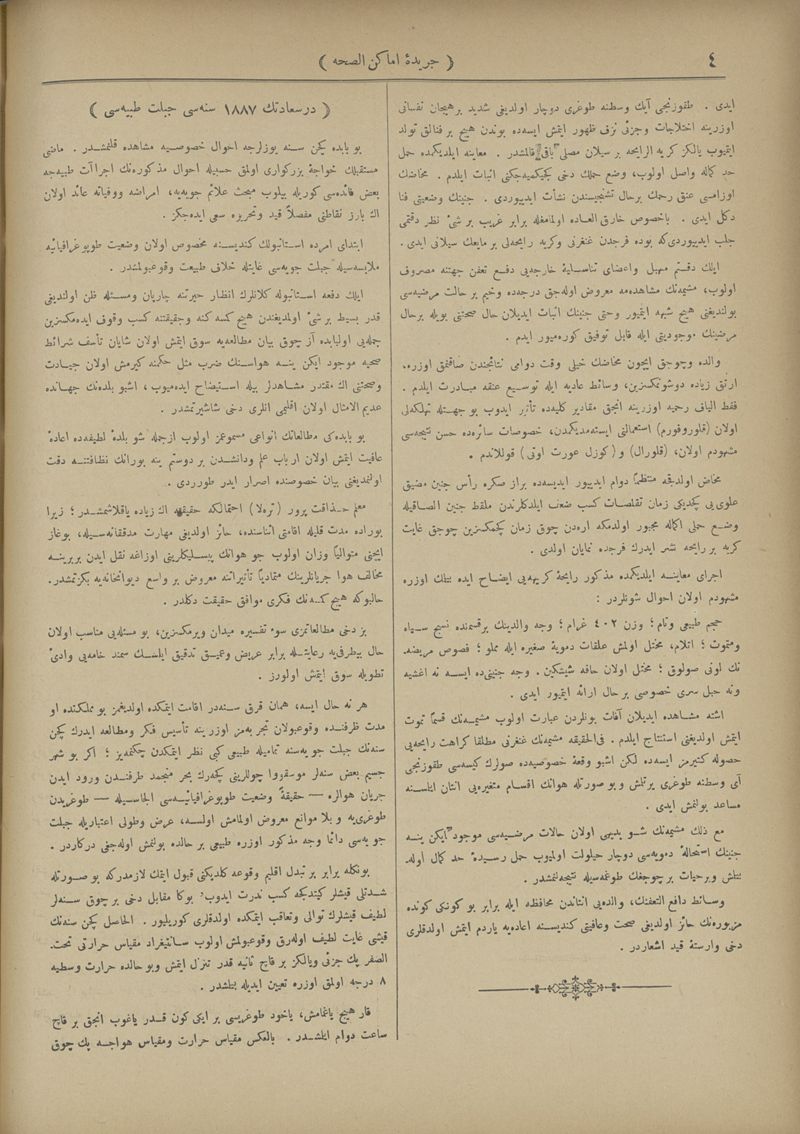 ٤
( جريدهٔ اماكن الصحه )
ايدى . طقوزنجى آيك وسطنه طوغرى دوچار اولديغى شديد بر هيجان نفسانى
اوزرينه اختلاجات وجزئى نزف ظهور ايتمش ايسه‌ده بوندن هيچ بر فنالق تولد
ايتميوب يالكز كريه الرايحه بر سيلان مصلى باقى قالمشدر . معاينه ايلديكمده حمل
حد كماله واصل اولوب، وضع حملك دخى كچيكميه‌جكنى اثبات ايلدم . مخاضك
اوزامسى عنق رحمك برحال تشنجيسندن نشأت ايدييوردى . جنينك وضعيتى فنا
دكل ايدى . باخصوص خارق العاده اولمامغله برابر غريب بر شئ نظر دقتمى
جلب ايدييوردى‌كه بوده فرجدن غنغرنى وكريه رايحه‌لى بر مايعك سيلانى ايدى .
ايلك دقتم مهبل واعضاى تناسليهٔ خارجه‌يى دفع تعفن جهتنه مصروف
اولوب، مشيمه‌نك مشاهده‌مه معروض اوله‌جق درجه‌ده وخيم بر حالت مرضيه‌سى
بولنديغنى هيچ شبهه ايتميور وحتى جنينك اثبات ايديلان حال صحتنى بويله برحال
مرضينك موجوديتى ايله قابل توفيق كوره‌ميور ايدم .
والده وچوجق ايچون مخاضك خيلى وقت دوامى نتائجندن صاقنمق اوزره،
آرتق زياده دوشونمكسزين، وسائط عاديه ايله توسيع عنقه مبادرت ايلدم .
فقط الياف رحميه اوزرينه انجق مقادير كليه‌ده تأثير ايدوب بو جهتله تهلكه‌لى
اولان (قلوروفورم) استعمالنى ايسته‌مديكمدن، خصوصات سائره‌ده حسن نتيجه‌سى
مشهودم اولان، (قلورال) و (كوزل عورت اوتى) قوللاندم .
مخاض اولدقجه منتظماً دوام ايدييور ايديسه‌ده براز صكره رأس جنين مضيق
علوى‌يى كچديكى زمان تقلصات كسب ضعف ايلدكلرندن ملقط جنين الصاقيله
وضع حملى اكماله مجبور اولدمكه آره‌دن چوق زمان كچمكسزين چوجق غايت
كريه بر رايحه نشر ايدرك فرجده نمايان اولدى .
اجراى معاينه ايلديكمده مذكور رايحهٔ كريهه‌يى ايضاح ايده بتلك اوزره
مشهودم اولان احوال شونلردر :
حجم طبيعى وتام؛ وزن ٤٠٢ غرام؛ وجه والدينك برقسمنده نسج سياه
ومتموت؛ اتلام، مختل اولمش علقات دمويهٔ صغيره ايله مملو؛ فصوص مريضه‌
نك لونى صولوق؛ مختل اولان حافه شيشكين . وجه جنينى‌ده ايسه نه اغشيه
ونه حبل سرى خصوصى بر حال ارائه ايتميور ايدى .
اشته مشاهده ايديلان آفات بونلردن عبارت اولوب مشيمه‌نك قسماً تموت
ايتمش اولديغنى استنتاج ايلدم . فى‌الحقيقه مشيمه‌نك غنغرنى مطلقا كراهت رايحه‌يى
حصوله كتيرمز ايسه‌ده لكن اشبو وقعهٔ خصوصيه‌ده صولرك كيسه‌سى طقوزنجى
آى وسطنه طوغرى يرتلش و بو صورتله هوانك اقسام متغيره‌يى انتان ايتلسنه
مساعد بولنمش ايدى .
مع ذلك مشيمه‌نك شو بديهى اولان حالات مرضيه‌سى موجود ايكن ينه
جنينك استحالهٔ دمويه‌سى دوچار حيلولت اولميوب حمل رسيدهٔ حد كمال اوله‌
بتلش وبرحيات برچوجغك طوغمه‌سيله نتيجه‌لنمشدر.
وسائط دافع التعفنك، والده‌يى انتاندن محافظه ايله برابر بو كونكى كونده
مزبوره‌نك حائز اولديغى صحت وعافيتى كنديسنه اعاده‌يه ياردم ايتمش اولدقلرى
دخى وارستهٔ قيد اشعاردر .
( درسعادتك ١٨٨٧ سنه‌سى جبلت طبيه‌سى )
بو بابده كچن سنه يوزلرجه احوال خصوصيه مشاهده قلنمشدر . ماضى
مستقبلك خواجهٔ بزركوارى اولمق حسبيله احوال مذكوره‌نك اجراآت طبيه‌جه
بعض فائده‌سى كوريله بيلوب مبحث علائم جويه‌يه، امراضه ووفياته عائد اولان
اك بارز نقاطنى مفصلاً قيد وتحريره سعى ايده‌جكز .
ابتداى امرده استانبولك كنديسنه مخصوص اولان وضعيت طوپوغرافيانيه
ملابسه‌سيله جبلت جويه‌سى غايتله خلاف طبيعت وقوعبولمشدر .
ايلك دفعه استانبوله كلانلرك انظار حيرتنه چارپان ومسئله ظن اولنديغى
قدر بسيط بر شئ اولمديغندن هيچ كسه كنه وحقيقتنه كسب وقوف ايده‌مكسزين
جمله‌يى اولبابده آز چوق بيان مطالعه‌يه سوق ايتمش اولان شايان تأسف شرائط
صحيه موجود ايكن ينه هواسنك ضرب مثل حكمنه كيرمش اولان جيادت
وصحتنى اك مقتدر مشاهدلر بيله استيضاح ايده‌ميوب، اشبو بلده‌نك جهانده
عديم الامثال اولان اقليمى انلرى دخى شاشيرتمشدر .
بو بابده‌كى مطالعاتك انواعى مسموعمز اولوب ازجمله شو بلدهٔ لطيفه‌ده اعادهٔ
عافيت ايتمش اولان ارباب علم ودانشدن بر دوستم ينه بورانك نظافتنه دقت
اولنمديغنى بيان خصوصنده اصرار ايدر طورردى .
معلم حذاقت پرور (ترملا) احتمالكه حقيقته اك زياده ياقلاشمشدر؛ زيرا
بوراده مدت قليله اقامتى اثناسنده، حائز اولديغى مهارت مدققانه‌سيله، بوغاز
ايچنى متوالياً وزان اولوب جو هوانك پيسلكلرينى اوزاغه نقل ايدن بربرينه
مخالف هوا جريانلرينك متمادياً تأثيراتنه معروض بر واسع ديوانخانه‌يه بكزتمشدر.
حالبوكه هيچ كمسه‌نك فكرى موافق حقيقت دكلدر .
بز دخى مطالعاتمزى سوء تفسيره ميدان ويرمكسزين، بو مسئله‌يى مناسب اولان
حال بيطرفى‌يه رعايتله برابر عريض وعميق تدقيق ايلمك سمند خامه‌يى وادئ
تطويله سوق ايتمش اولورز .
هر نه حال ايسه، همان قرق سنه‌در اقامت ايتمكده اولديغمز بو مملكتده او
مدت ظرفنده وقوعبولان تجربه‌مز اوزرينه تأسيس فكر ومطالعه ايدرك كچن
سنه‌نك جبلت جويه‌سنه تماميله طبيعى كبى نظر ايتمكدن چكنمه‌يز؛ اكر بو شهر
جسيم بعض سنه‌لر موسقووا چوللرينى كچه‌رك بحر منجمد طرفندن ورود ايدن
جريان هوالره — حقيقهً وضعيت طوپوغرافيانيه‌سى الحاسيله — طوغريدن
طوغرى‌يه و بلا موانع معروض اولمامش اولسه، عرض وطولى اعتباريله جبلت
جويه‌سى دائما وجه مذكور اوزره طبيعى بر حالده بولنمش اوله‌جغى دركاردر .
بونكله برابر بر تبدل اقليم وقوعه كلديكنى قبول ايتمك لازمدركه بو صورتله
شدتلى قيشلر كيتدكجه كسب ندرت ايدوب، بوكا مقابل دخى بر چوق سنه‌لر
لطيف قيشلرك توالى وتعاقب ايتمكده اولدقلرى كوريليور . الحاصل كچن سنه‌نك
قيشى غايت لطيف اوله‌رق وقوعبولمش اولوب سانتيغراد مقياس حرارتى تحت‌
الصفر پك جزئى ويالكز بر قاچ ثانيه قدر تنزل ايتمش وبو حالده حرارت وسطيه
٨ درجه اولمق اوزره تعيين ايديله بتلشدر .
قار هيچ ياغمامش، ياخود طوغريسى بر ايكى كون قدر ياغوب انجق بر قاچ
ساعت دوام ايتلشدر . بالعكس مقياس حرارت ومقياس هواجه پك چوق